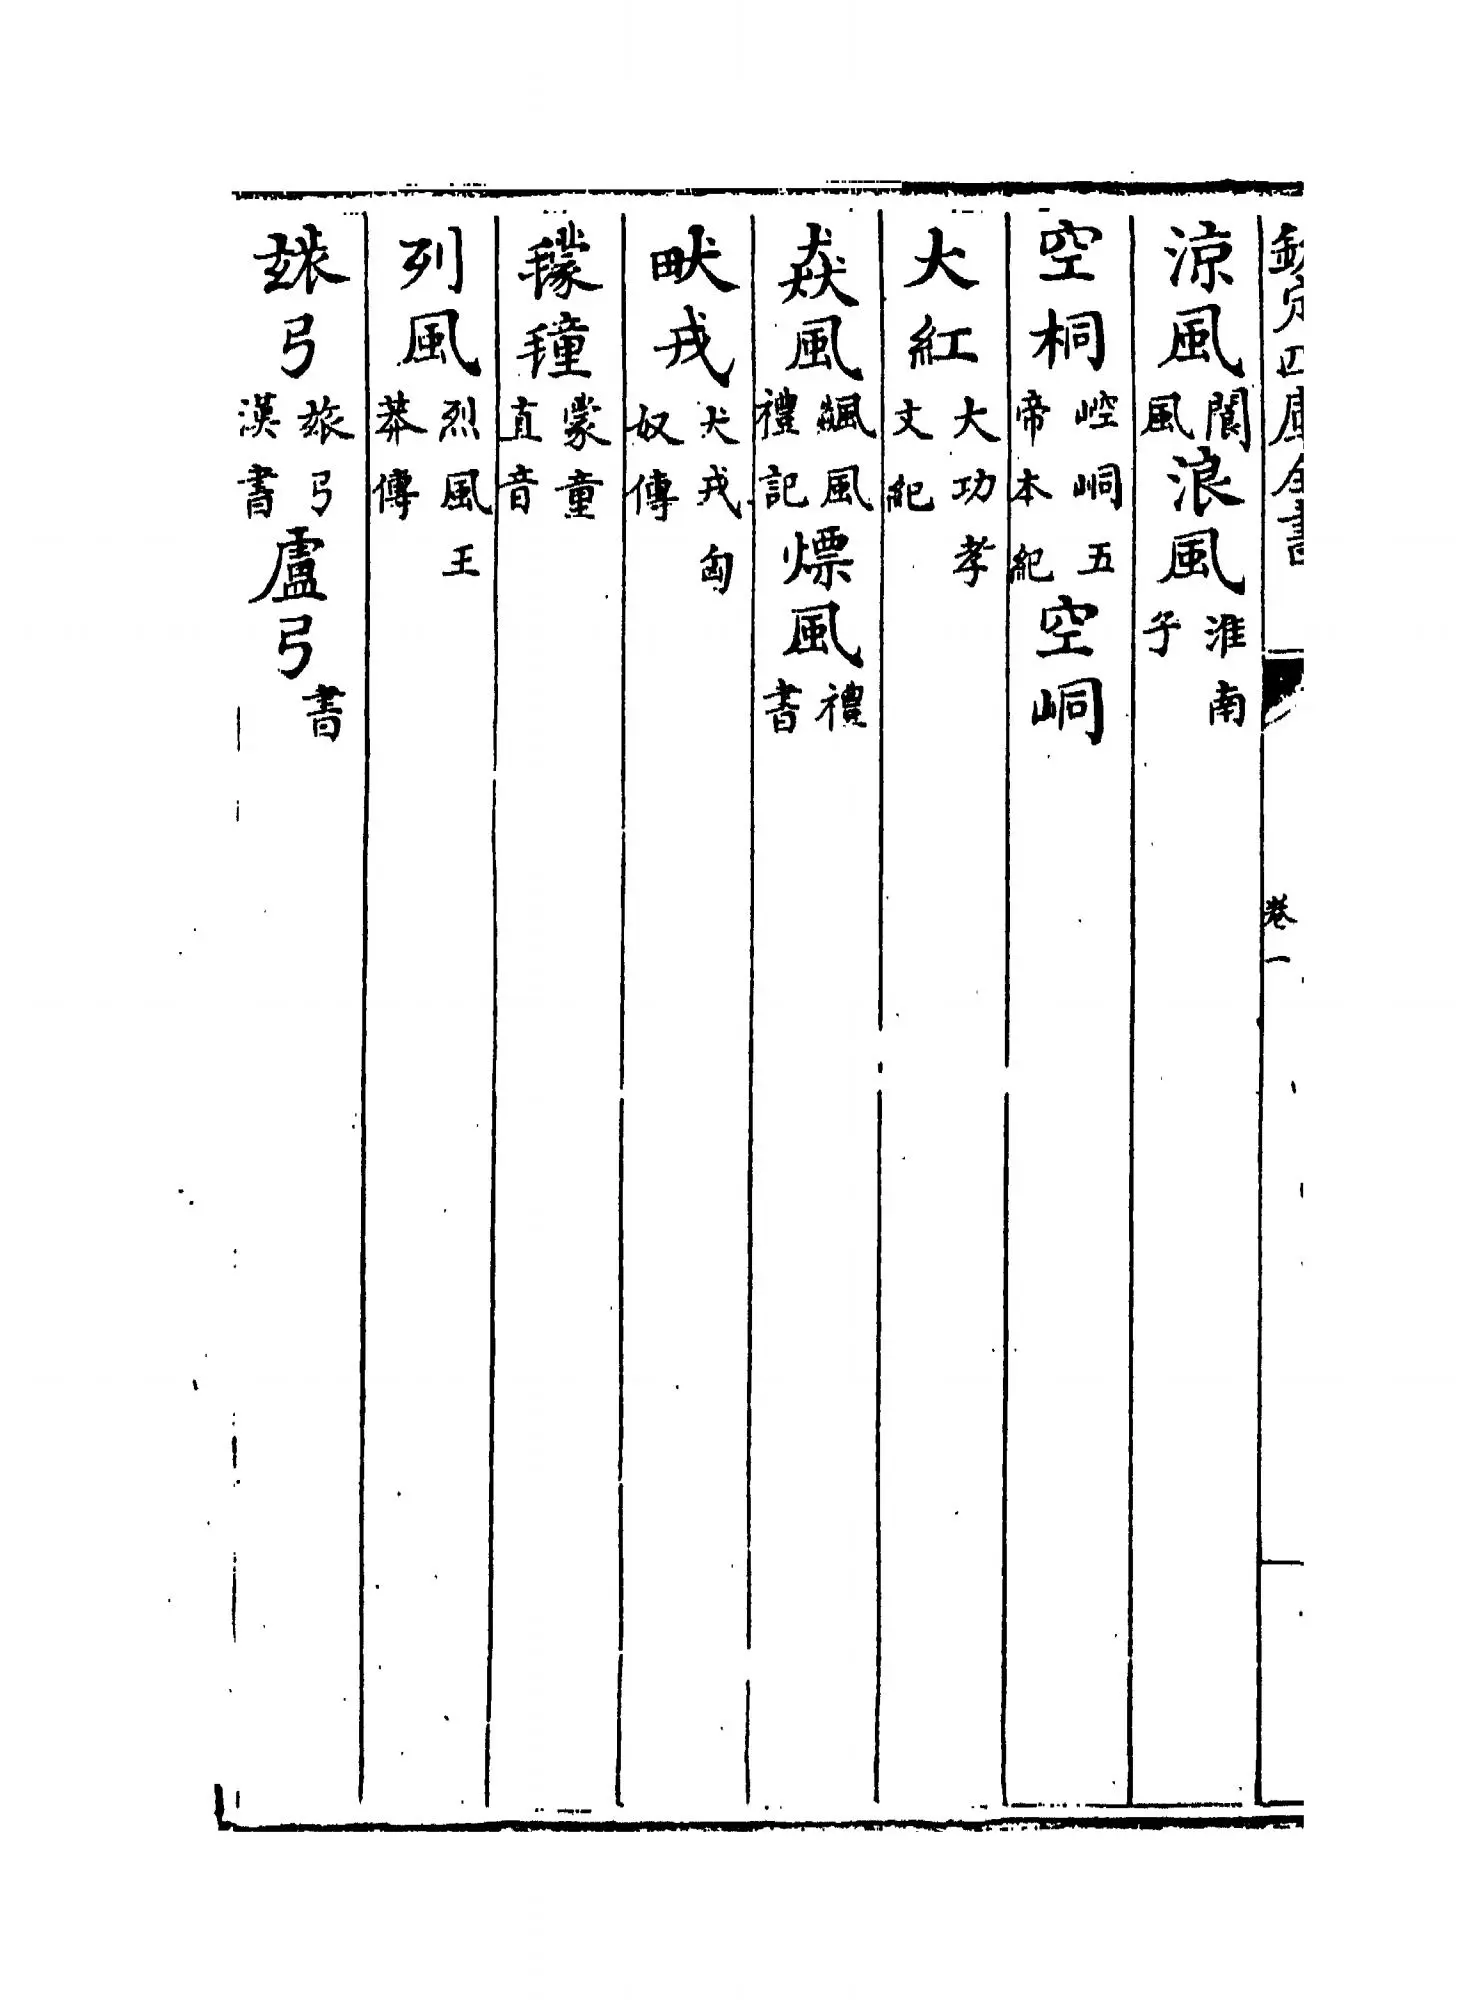 欽定四庫全書 卷一
涼風閬風浪風淮南子
空桐崆峒五帝本紀空峒
大紅大功孝文紀
猋風飆風禮記熛風禮書
畎戎犬戎匈奴傳
氋氃蒙童直音
列風烈風王莽傳
玈弓旅弓漢書盧弓書